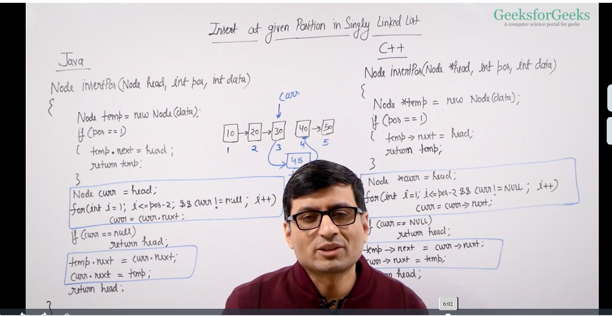 Insert at given Position in Singly Linked List
GeeksforGeeks
A computer science portal for geeks
Java
Node insertPos(Node head, int pos, int data)
{
Node temp = new Node(data);
if (pos == 1)
{ temp.next = head;
return temp;
}
Node curr = head;
for(int i=1; i<=pos-2; && curr!=null; i++)
curr = curr.next;
if (curr == null)
return head;
temp.next = curr.next;
curr.next = temp;
return head;
}
curr
10 20 30 40 50
1 2 3 4 5
45
C++
Node insertPos(Node *head, int pos, int data)
{
Node *temp = new Node(data);
if (pos == 1)
{
temp→next = head;
return temp;
}
Node *curr = head;
for(int i=1; i<=pos-2 && curr!=NULL; i++)
curr = curr→next;
(curr == NULL)
return head;
temp→next = curr→next;
curr→next = temp;
head;
6:02